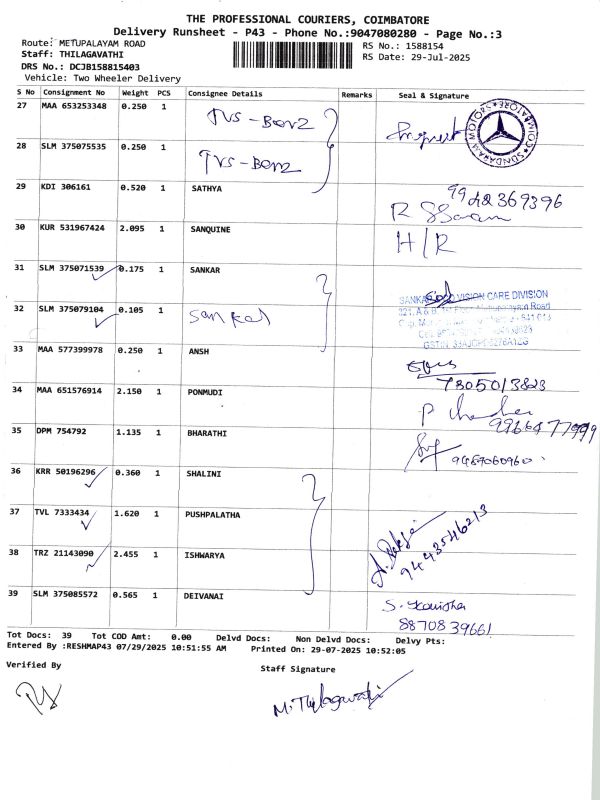 THE PROFESSIONAL COURIERS, COIMBATORE
Delivery Runsheet - P43 - Phone No.:9047080280 - Page No.:3
Route: METUPALAYAM ROAD
Staff: THILAGAVATHI
DRS No.: DCJB158815403
Vehicle: Two Wheeler Delivery
RS No.: 1588154
RS Date: 29-Jul-2025
S No Consignment No Weight PCS Consignee Details Remarks Seal & Signature
27 MAA 653253348 0.250 1 TVS-Benz
SUNDARAM MOTORS COIMBATORE
28 SLM 375075535 0.250 1 TVS-Benz
29 KDI 306161 0.520 1 SATHYA 9942369396
30 KUR 531967424 2.095 1 SANQUINE H/R
31 SLM 375071539 0.175 1 SANKAR
VISION CARE DIVISION
32 SLM 375079104 0.105 1 Sankar
33 MAA 577399978 0.250 1 ANSH
7305013823
34 MAA 651576914 2.150 1 PONMUDI
35 DPM 754792 1.135 1 BHARATHI
9489060960
36 KRR 50196296 0.360 1 SHALINI
37 TVL 7333434 1.620 1 PUSHPALATHA
9443546213
38 TRZ 21143090 2.455 1 ISHWARYA
39 SLM 375085572 0.565 1 DEIVANAI
8870839661
Tot Docs: 39 Tot COD Amt: 0.00 Delvd Docs: Non Delvd Docs: Delvy Pts:
Entered By :RESHMAP43 07/29/2025 10:51:55 AM Printed On: 29-07-2025 10:52:05
Verified By
Staff Signature
M. Thilagavathi